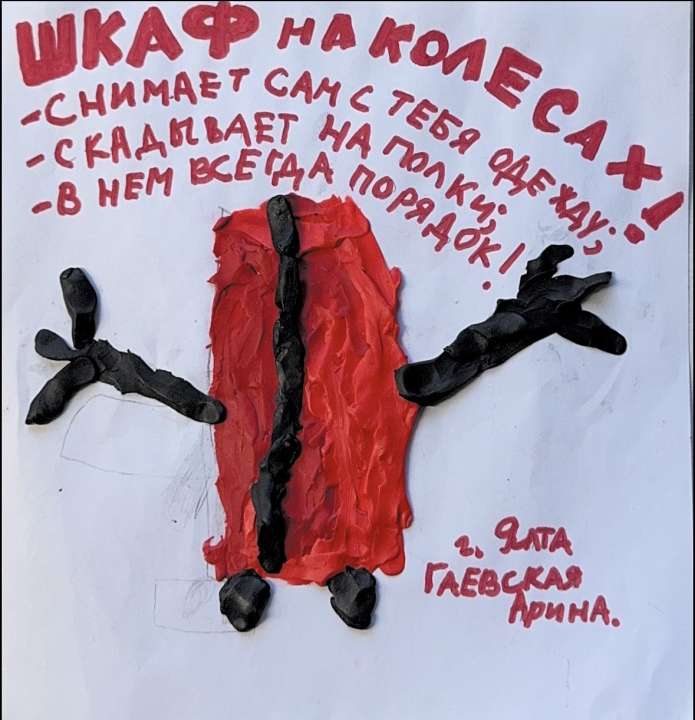 ШКАФ НА КОЛЕСАХ!
-СНИМАЕТ САМ С ТЕБЯ ОДЕЖДУ;
-СКАДЫВАЕТ НА ПОЛКИ;
-В НЕМ ВСЕГДА ПОРЯДОК!
г. ЯЛТА
ГАЕВСКАЯ
АРИНА.